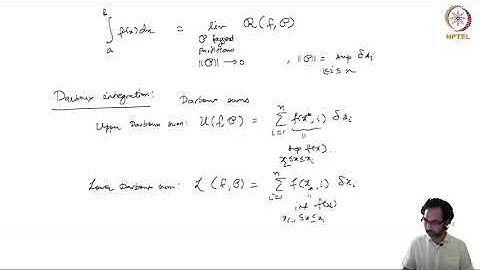 NPTEL
b
∫ f(x) dx = lim R(f, P)
a
P tagged
partitions
||P|| → 0 , ||P|| = sup δx_i
1≤i≤n
Darboux integration: Darboux sums
Upper Darboux sum: U(f, P) = ∑_{i=1}^{n} f(x*, i) δx_i
sup f(x)
x_{i-1} ≤ x ≤ x_i
Lower Darboux sum: L(f, P) = ∑_{i=1}^{n} f(x_*, i) δx_i
inf f(x)
x_{i-1} ≤ x ≤ x_i